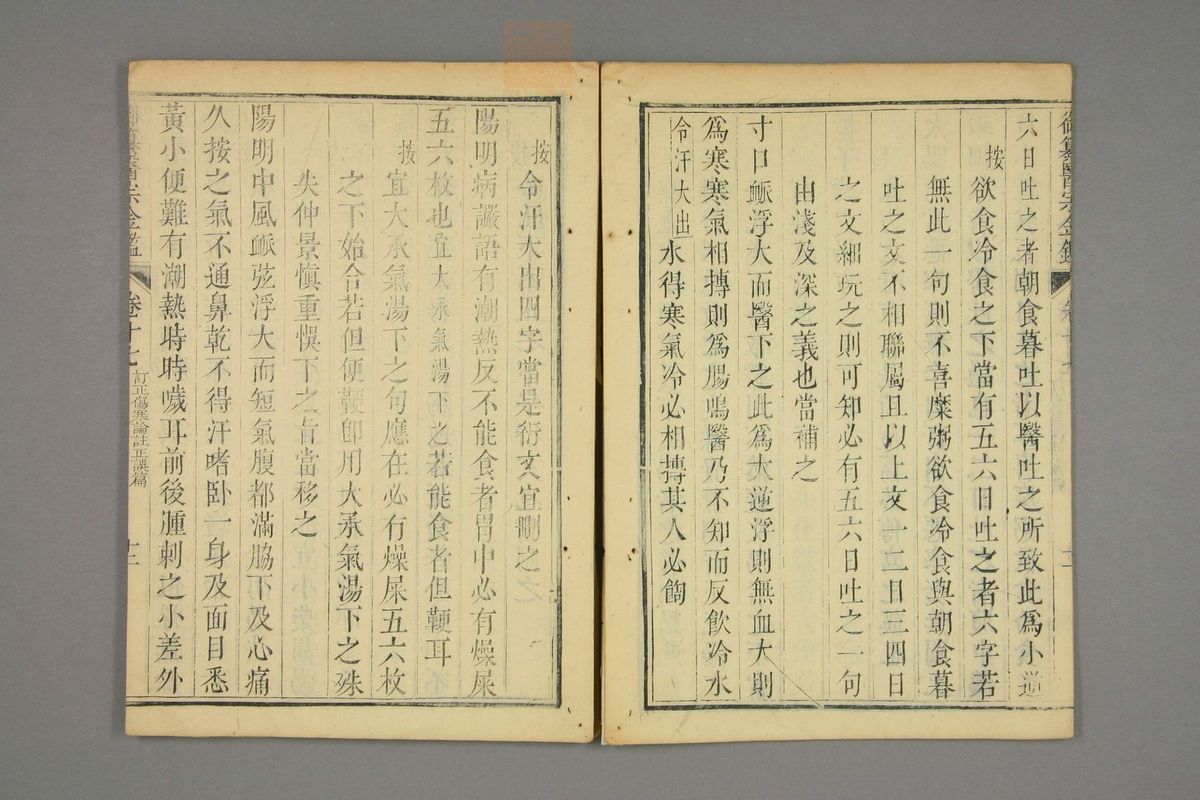 御纂醫宗金鑑
六日吐之者朝食暮吐以醫吐之所致此爲小逆
按
欲食冷食之下當有五六日吐之者六字若
無此一句則不喜糜粥欲食冷食與朝食暮
吐之文不相聯屬且以上文一二日三四日
之文細玩之則可知必有五六日吐之一句
由淺及深之義也當補之
寸口脈浮大而醫下之此爲大逆浮則無血大則
爲寒寒氣相摶則爲腸鳴醫乃不知而反飲冷水
令汗大出水得寒氣冷必相摶其人必䭇
按
令汗大出四字當是衍文宜刪之
陽明病讝語有潮熱反不能食者胃中必有燥屎
五六枚也宜大承氣湯下之若能食者但鞕耳
按
宜大承氣湯下之句應在必有燥屎五六枚
之下始合若但便鞕卽用大承氣湯下之殊
失仲景愼重悞下之旨當移之
陽明中風脈弦浮大而短氣腹都滿脇下及心痛
久按之氣不通鼻乾不得汗嗜卧一身及面目悉
黃小便難有潮熱時時噦耳前後腫刺之小差外
御纂醫宗金鑑 卷十七 訂正傷寒論註正誤篇 十二